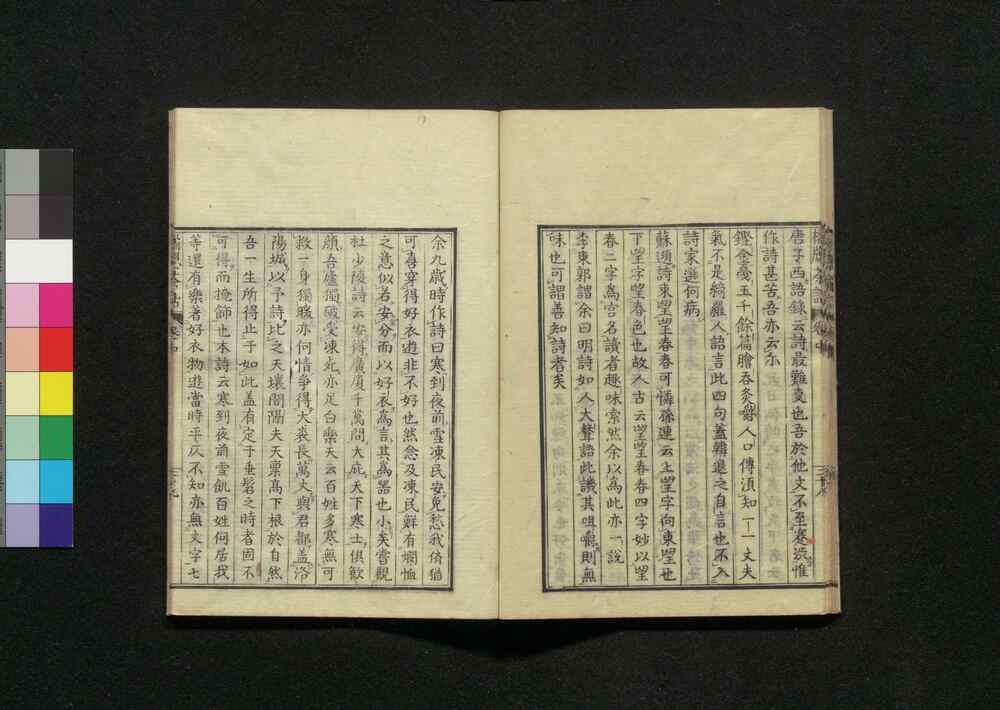 唐子西語錄云詩最難事也吾於他文不至蹇澁惟
作詩甚苦吾亦云尒
鏗金戞玉千餘篇膾吞炙嚼人口傳須知一一丈夫
氣不是綺羅人語言此四句蓋韓退之自言也不入
詩家選何病
蘇頲詩東望望春春可憐孫逖云上望字向東望也
下望字望春色也故人古云望望春春四字妙以望
春二字爲宮名讀者趣味索然余以爲此亦一說
李東郭謂余曰明詩如人大聲語此譏其咀嚼則無
味也可謂善知詩者矣
余九歲時作詩曰寒到夜前雪凍民安免愁我倚猶
可喜穿得好衣遊非不好也然念及凍民鮮有憫恤
之意似若安分而以好衣爲言其爲器也小矣嘗觀
杜少陵詩云安得廣廈千萬間大庇天下寒士俱歡
顔吾廬獨破受凍死亦足白樂天云百姓多寒無可
救一身獨暖亦何情爭得大裘長萬丈與君都蓋洛
陽城以予詩比之天壤間隔夫天禀高下根於自然
吾一生所得止于如此盖有定于垂髫之時者固不
可得而掩飾也本詩云寒到夜前雪飢百姓何居我
等還有樂著好衣物遊當時平仄不知亦無文字七